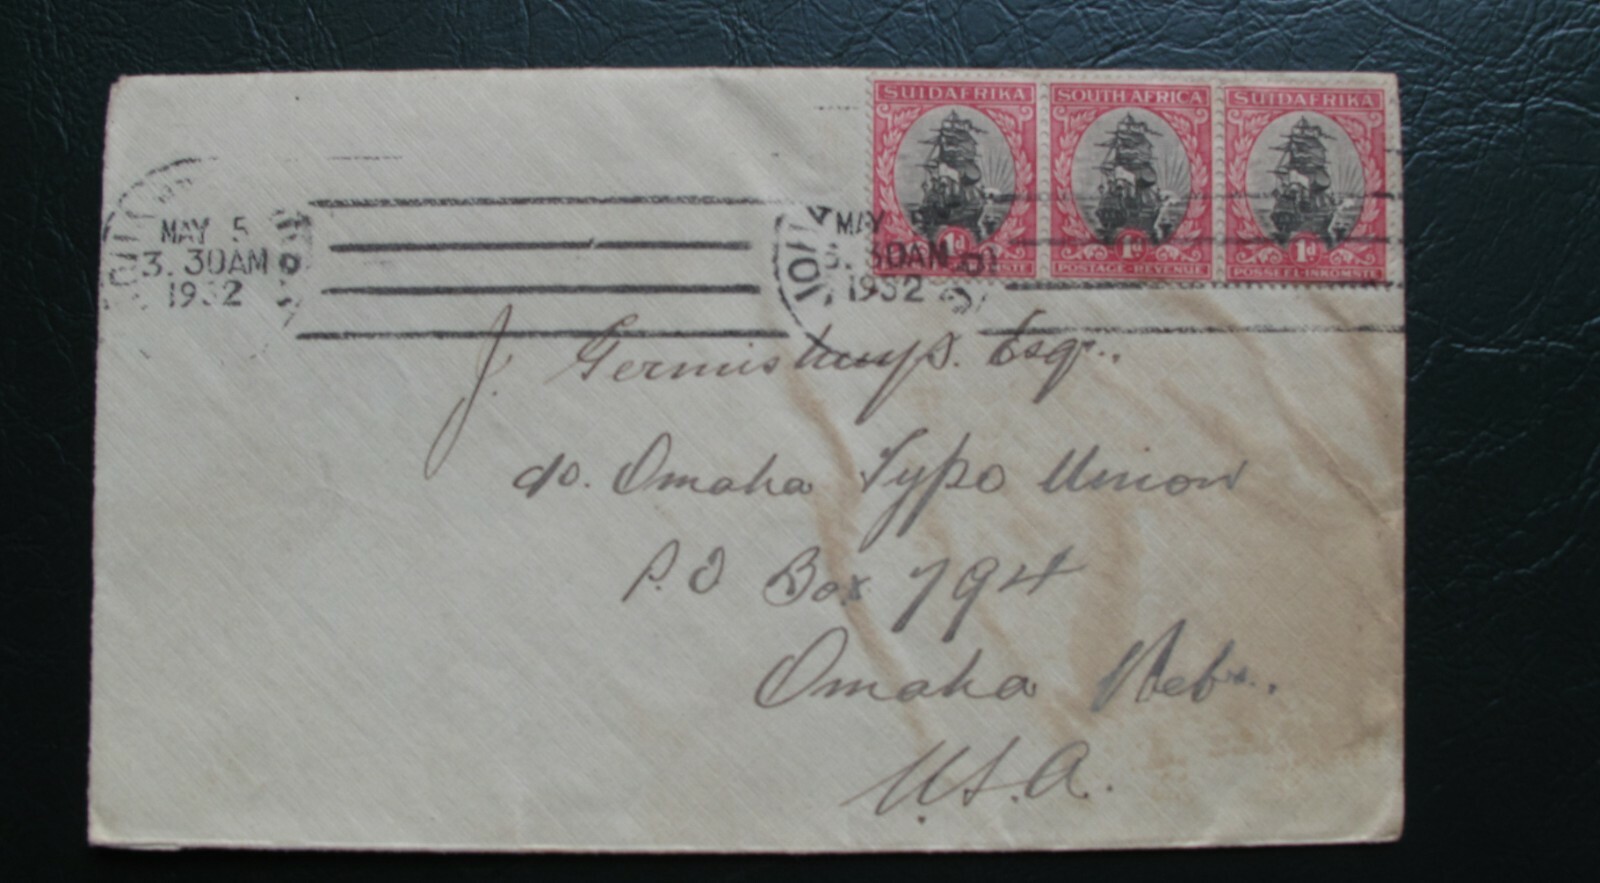 SUIDAFRIKA SOUTH AFRICA SUIDAFRIKA
1d 1d 1d
POSTAGE-REVENUE POSSEEL-INKOMSTE
MAY 5
3.30AM
1932
MAY 5
3.30AM
1932
J. Esqr.,
c/o. Omaha Typo Union
P.O Box 794
Omaha Nebr.,
U.S.A.